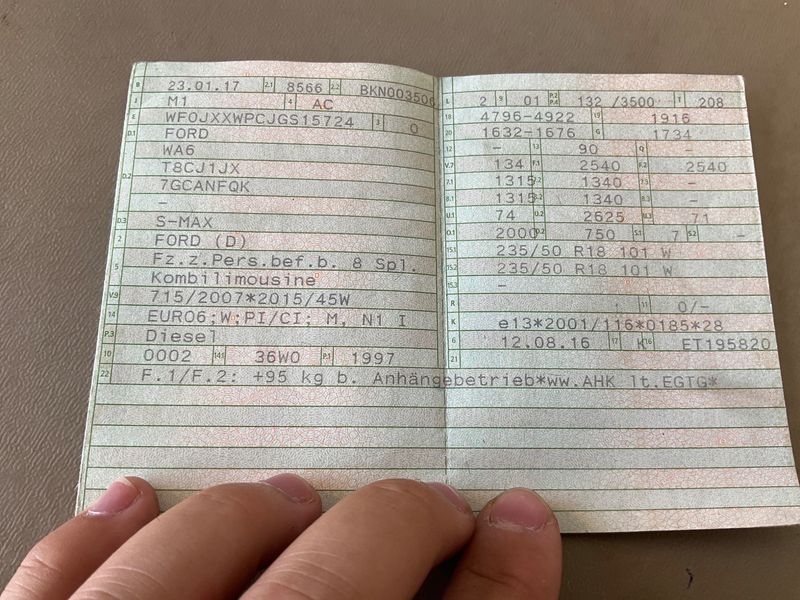 B 23.01.17 2.1 8566 2.2 BKN003506
J M1 4 AC
E WF0JXXWPCJGS15724 3 0
D.1 FORD
WA6
T8CJ1JX
D.2 7GCANFQK
–
D.3 S-MAX
2 FORD (D)
5 Fz.z.Pers.bef.b. 8 Spl.
Kombilimousine
V.9 715/2007*2015/45W
14 EURO6;W;PI/CI; M, N1 I
P.3 Diesel
10 0002 14.1 36W0 P.1 1997
22 F.1/F.2: +95 kg b. Anhängebetrieb*ww.AHK lt.EGTG*
L 2 9 01 P.2 P.4 132 /3500 T 208
18 4796-4922 19 1916
20 1632-1676 G 1734
12 – 13 90 Q –
V.7 134 F.1 2540 F.2 2540
7.1 1315 7.2 1340 7.3 –
8.1 1315 8.2 1340 8.3 –
U.1 74 U.2 2625 U.3 71
O.1 2000 O.2 750 S.1 7 S.2 –
15.1 235/50 R18 101 W
15.2 235/50 R18 101 W
15.3 –
R 11 0/-
K e13*2001/116*0185*28
6 12.08.16 17 K 16 ET195820
21